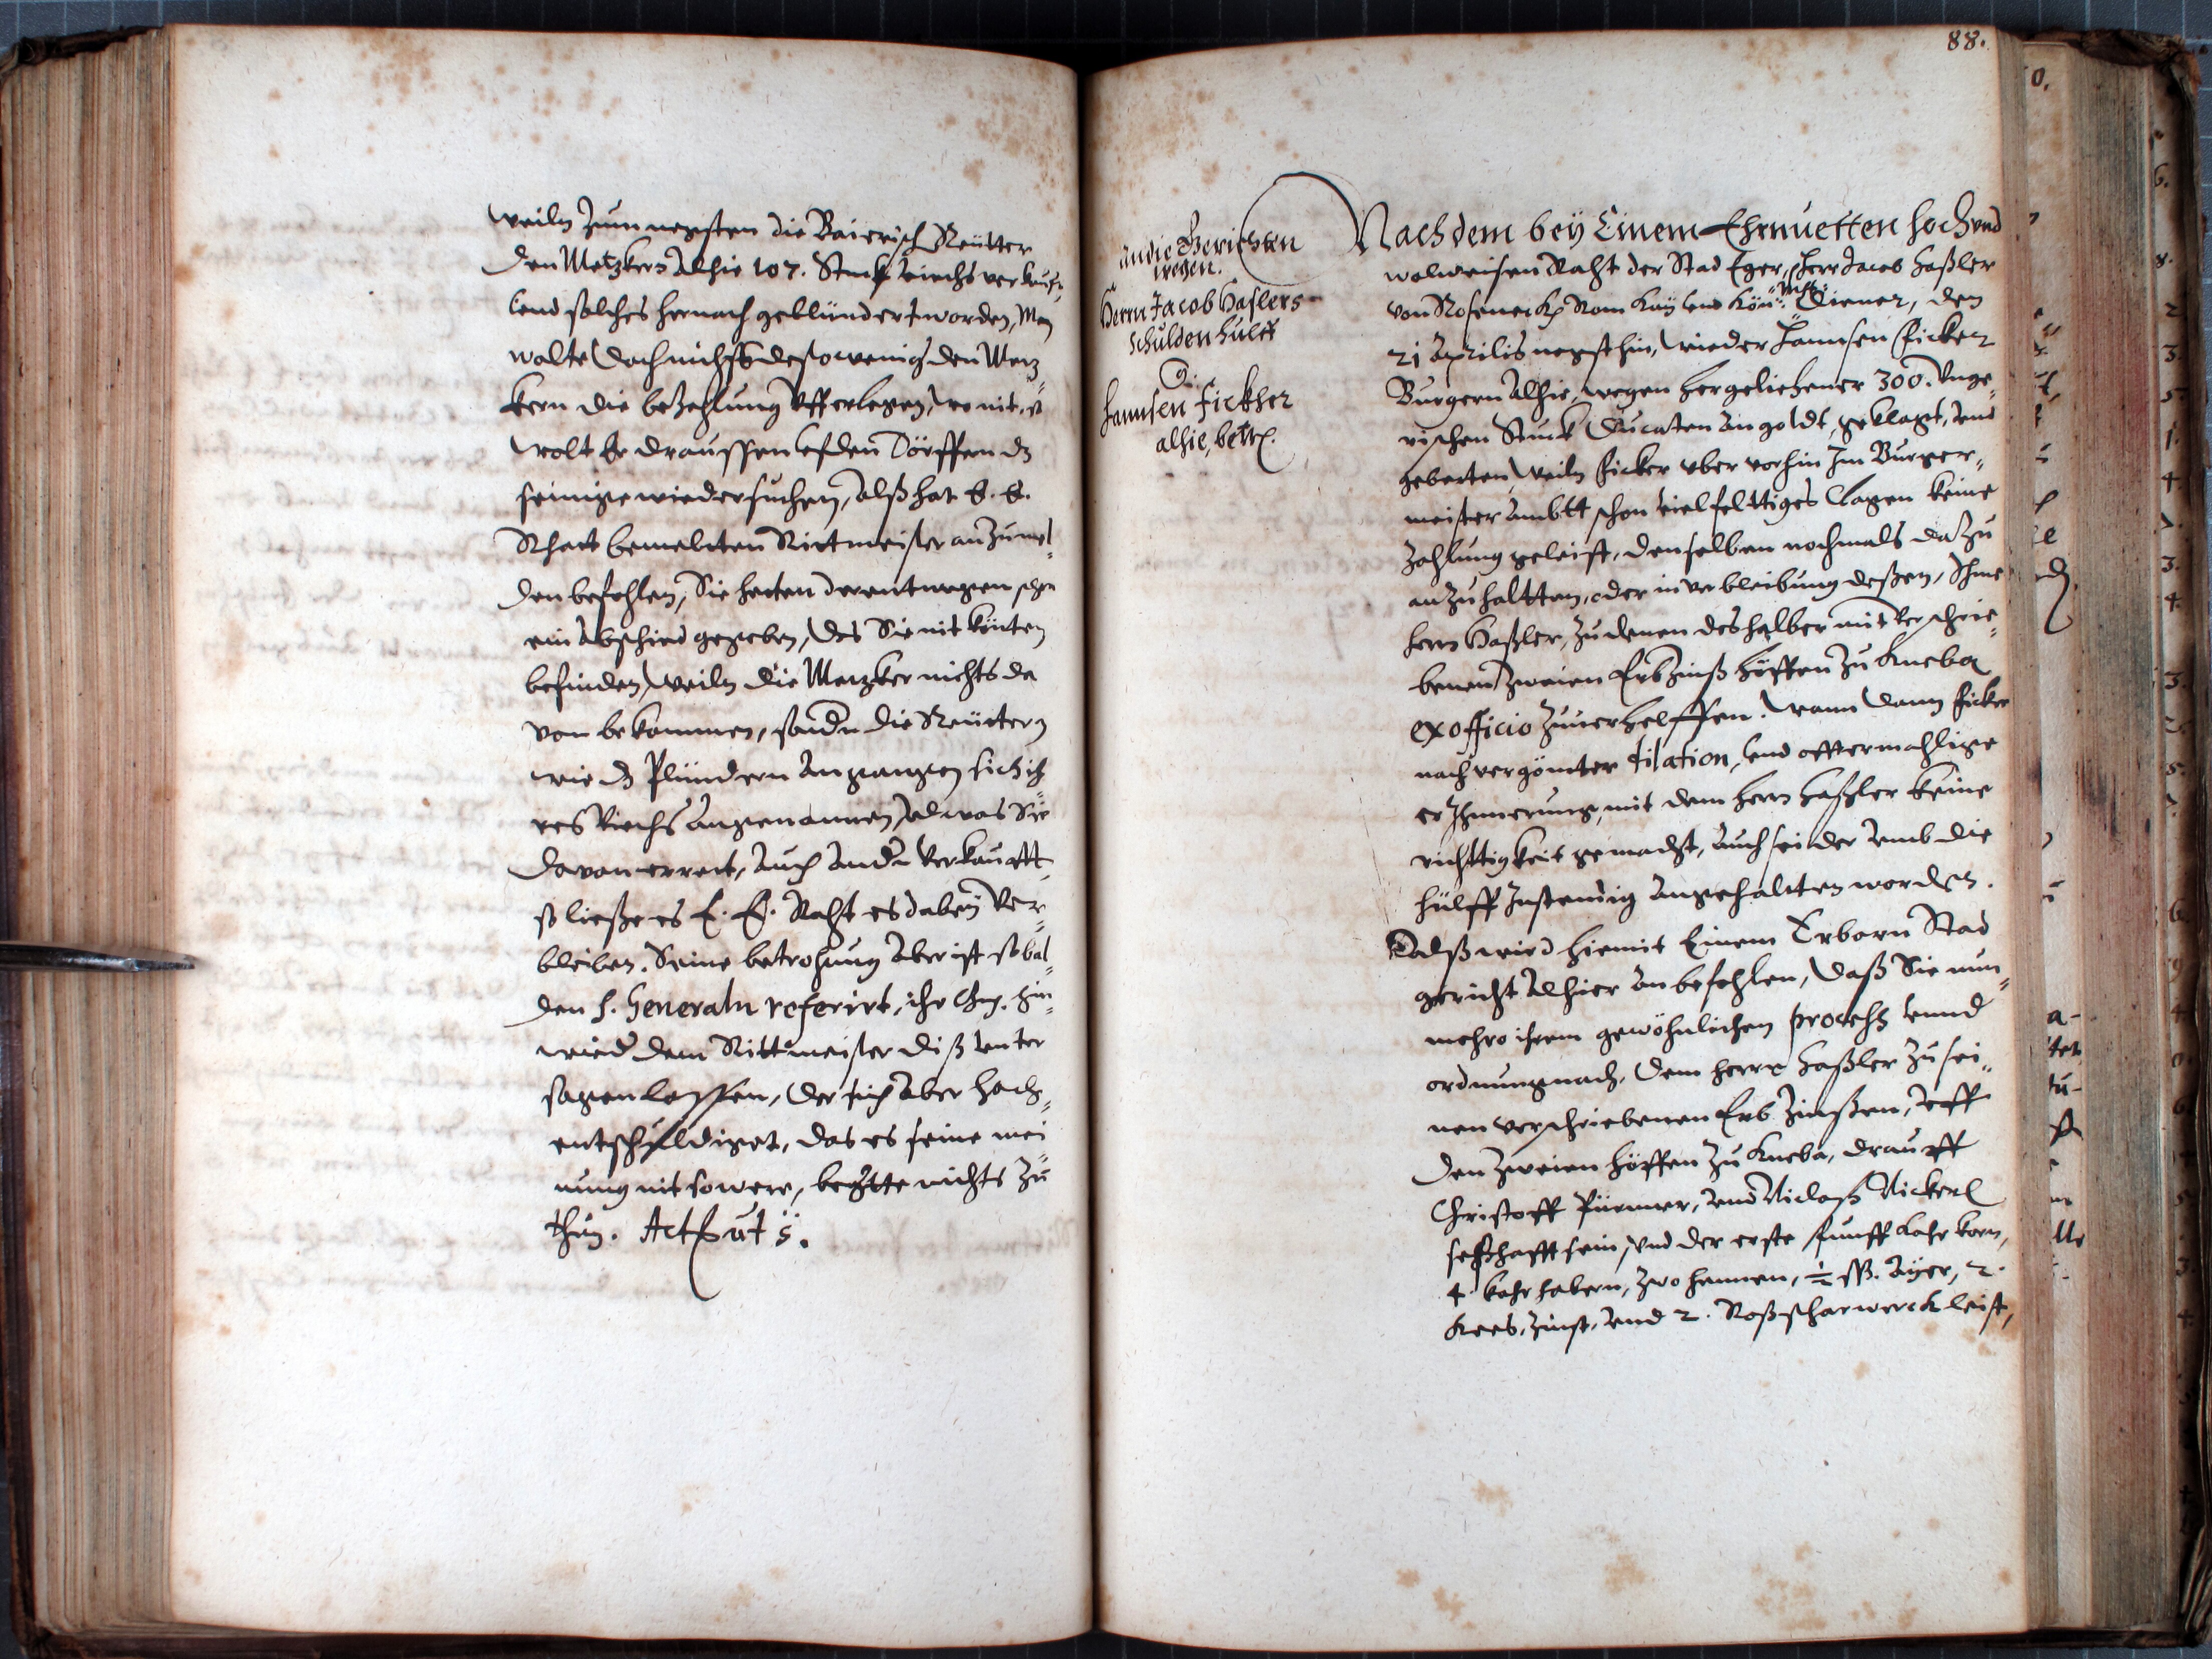 weiln zum negsten die Baierisch Reütter
den Metzkern alhie 107. Stuckh viechs verkaufft,
vnd solches hernach geblündert worden, Man
wolte doch nichts desto wenig den Metz„
kern die bezahlung vfferlegen, wo nit, so
wolt Er draussen vf den Dörffern dz
seinige wieder suchen, Alß hat E. E.
Rhatt bemelten Rittmeister anzumel„
den befohlen, Sie hetten derentwegen schon
ein Abschied gegeben, des Sie nit könten
befinden, weiln die Metzker nichts da
von bekommen, sondern die Reütter,
wie dz Plündern angangen sich ih„
res Viechs angenommen, etwas Sie
davon errett, auch andern verkaufft,
so liesse es E. E. Raht es dabey ver„
bleiben. Seine betrohung aber ist sobal„
den H. Generaln referirt, ihr Gn. hin„
wied dem Rittmeister diß vnter
sagen lassen, der sich aber hoch„
entschuldiget, das es seine mei„
nung nit so were, begerte nichts zu
thun. Act. ut s.
88.
An die Gerichten
wegen.
Herrn Jacob Haslers
Schulden hülff
Hannsen Fickher
alhie, betr.
Nachdem bey Einem Ehrnuetten hoch vnd
wolweisen Raht der Stad Eger, Herr Jacob Haßler
von Roseneckh Röm Kay vnd Kön: Mtt: Diener, den
21 Aprilis negsthin, wieder Hannsen Ficker
Burgern alhie, wegen hergeliehener 300. Vnge„
rischen Stuck Ducaten an goldt, geklagt, vnd
gebetten, weiln Ficker vber vorhin Im Burger„
meister Ambtt schon vielfelttiges Clagen keine
zahlung geleist, denselben nochmals dazu
anzuhaltten, oder in verbleibung dessen, Ihme
Herrn Haßler, zu denen deshalber mit verschrie„
benen zweien Erbzinß höffen zu Kneba
ex officio zuuerhelffen. Wann dann Ficker
nach vergönter dilation, vnd offtermahlige
erIhnnerung, mit dem Herrn Haßler keine
richttigkeit gemacht, auch seider vmb die
hülff Instendig angehaltten worden.
Alß wird hiemit Einem Erbarn Stad
gericht alhier anbefohlen, daß Sie nun„
mehro ihrem gewöhnlichen process vnnd
ordnung nach, dem Herrn Haßler zu sei„
nen verschriebenen Erb Zinßen, vff
den zweien höffen zu Kneba, drauff
Christoff Pürner, vnd Niclaß Nickerl
seßhafft sein, vnd der erste funff Kahr korn,
4 Kahr habern, zwo hennen, ½ ß. Ayer, 2.
Kees, zinst, vnd 2. Roßscharwerckh leist,